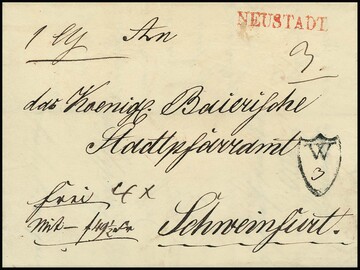 NEUSTADT
1 An
3
das Koenigl. Baierische
Stadtpfarramt
W
3
frei 4 x
Mit
Schweinfurt.